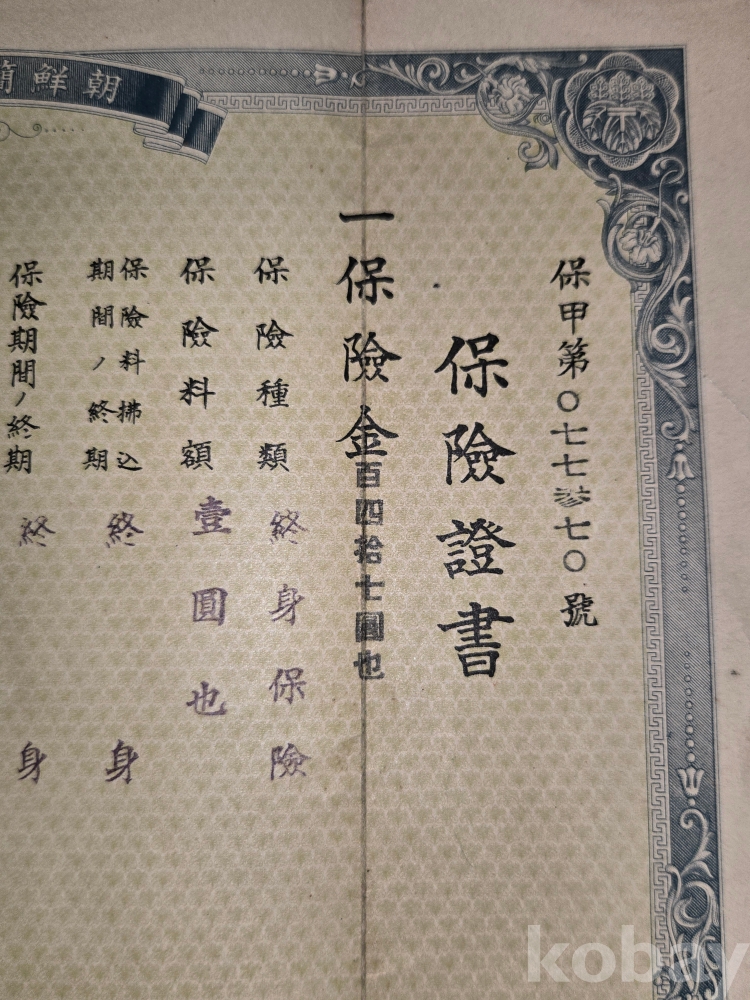 朝鮮簡
保甲第〇七七參七〇號
保險證書
一保險金百四拾七圓也
保險種類 終身保險
保險料額 壹圓也
保險料拂込
期間ノ終期 終身
保險期間ノ終期 終身